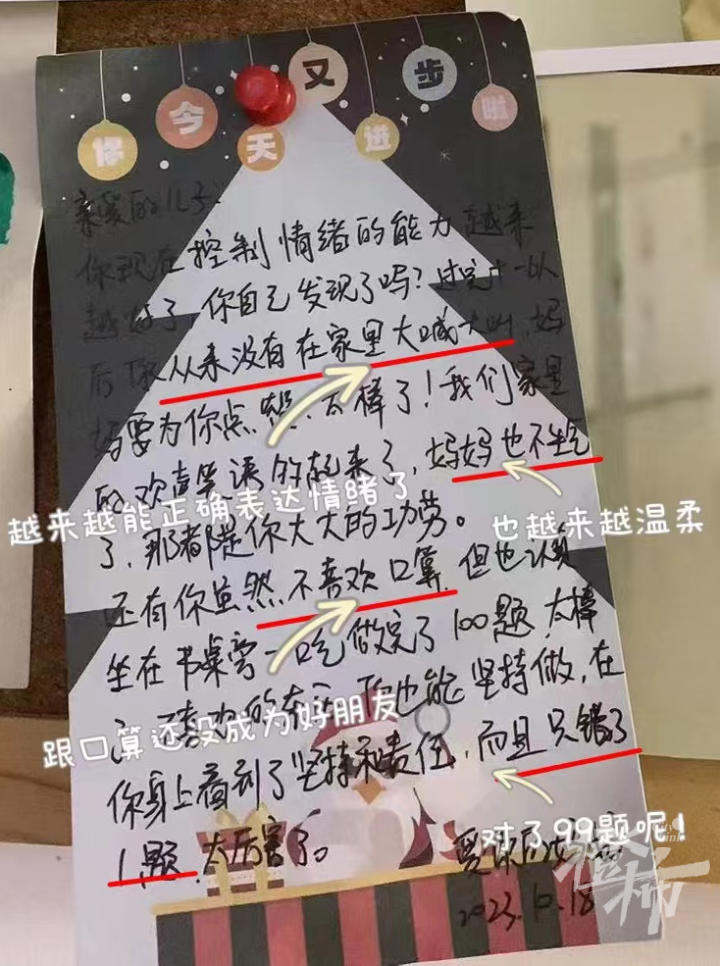 你今天又进步啦
亲爱的儿子:
你现在控制情绪的能力越来
越好了,你自己发现了吗?过完十一以
后你从来没有在家里大喊大叫,妈
妈要为你点赞,太棒了!我们家里
的欢声笑语的起来了,妈妈也不生气
越来越能正确表达情绪了
也越来越温柔
了,那都是你大大的功劳。
还有你虽然不喜欢口算,但也认真
坐在书桌旁一口气做完了100题,太棒
了,不喜欢的东西你也能坚持做,在
跟口算还没成为好朋友
你身上看到了坚持和责任,而且只错了
对了99题呢!
1题,太厉害了。
爱你的妈妈
2023.10.18